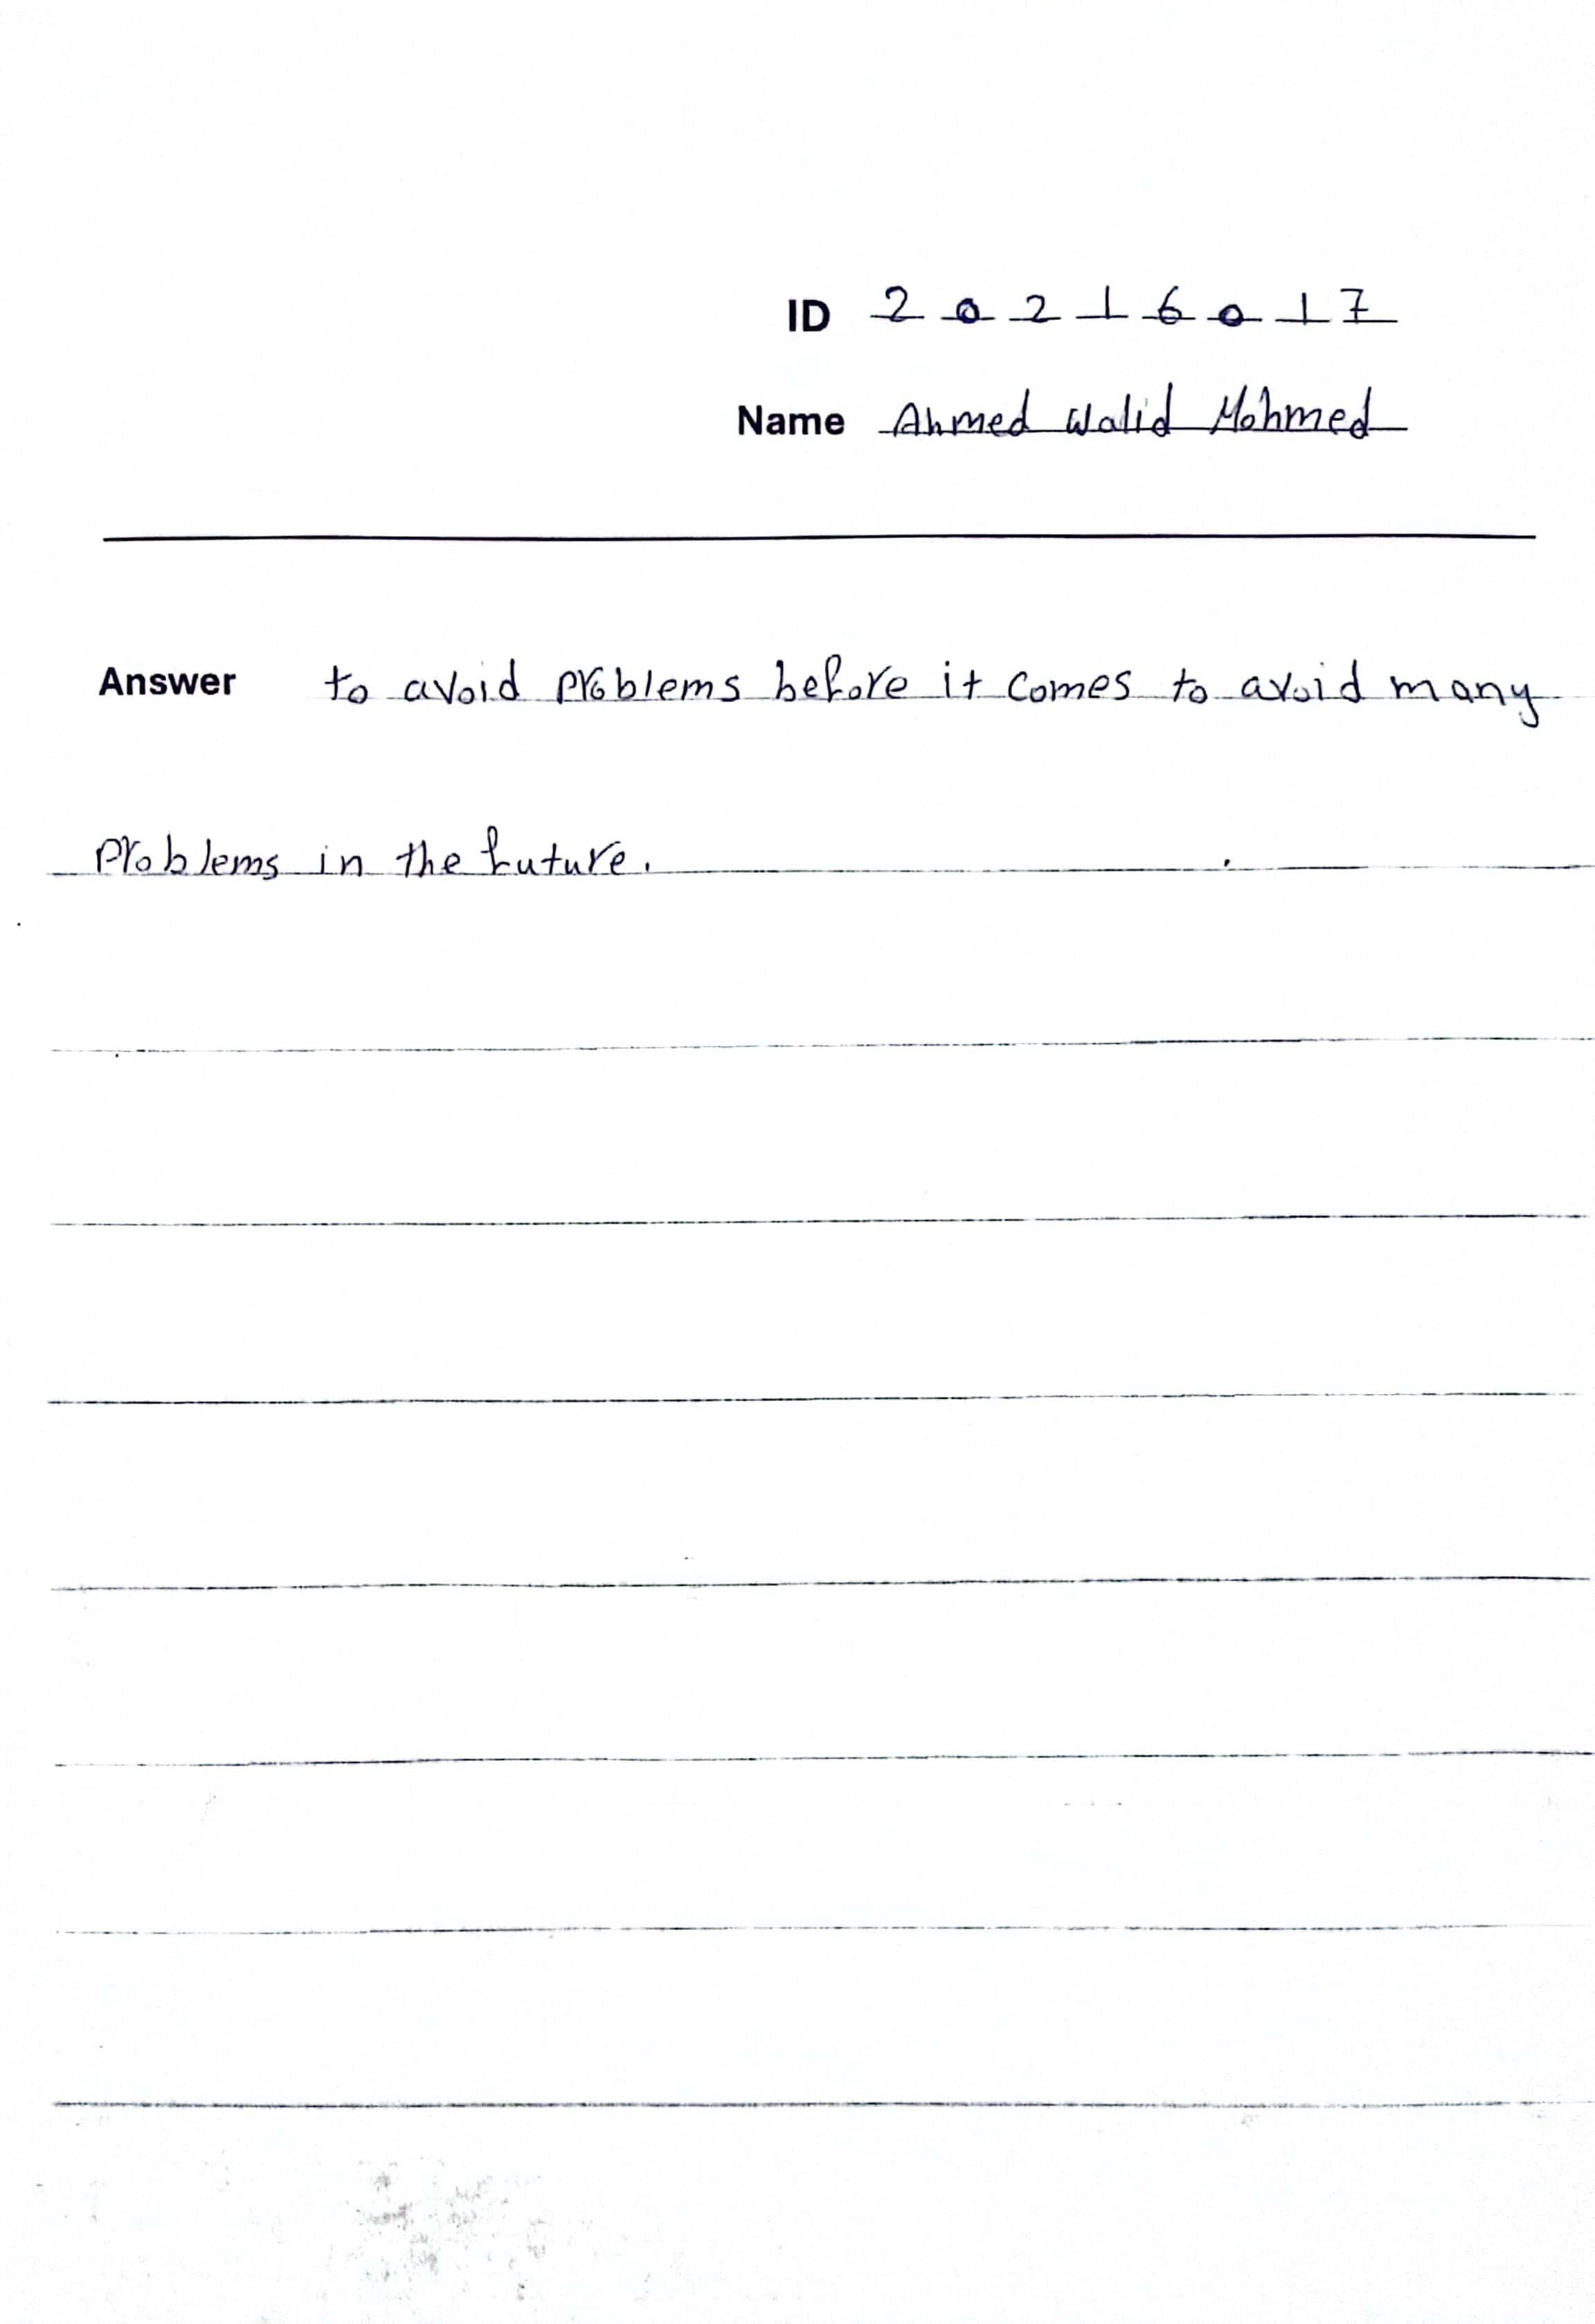 ID 2 0 2 1 6 0 1 7
Name Ahmed Walid Mohmed
Answer to avoid problems before it comes to avoid many
problems in the future.